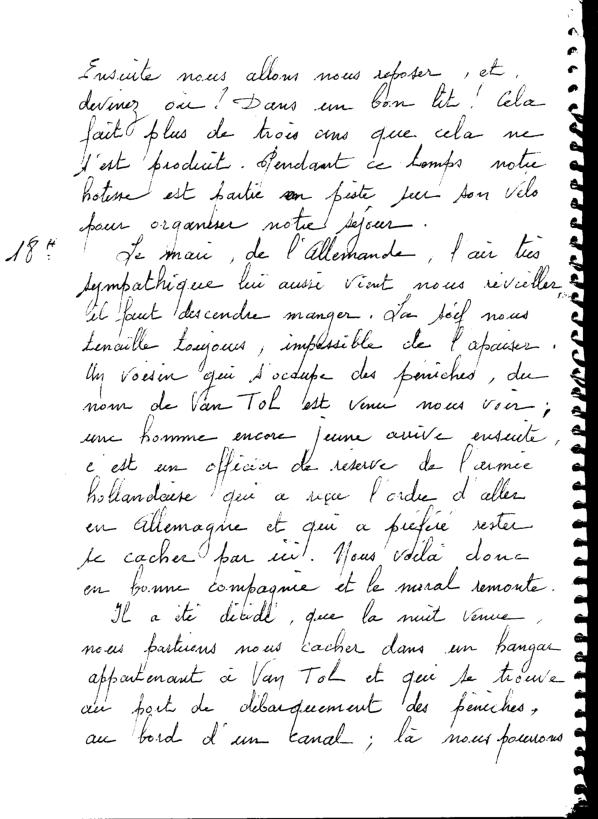 Ensuite nous allons nous reposer, et,
devinez où ! Dans un bon lit ! Cela
fait plus de trois ans que cela ne
s'est produit. Pendant ce temps notre
hotesse est partie en piste sur son vélo
pour organiser notre séjour.
18H. Le mari, de l'Allemande, l'air très
sympathique lui aussi vient nous réveiller,
il faut descendre manger. La soif nous
tenaille toujours, impossible de l'apaiser.
Un voisin qui s'occupe des péniches, du
nom de Van Tol est venu nous voir ;
une homme encore jeune arrive ensuite,
c'est un officier de réserve de l'armée
hollandaise qui a reçu l'ordre d'aller
en Allemagne et qui a préféré rester
se cacher par ici. Nous voilà donc
en bonne compagnie et le moral remonte.
Il a été décidé, que la nuit venue,
nous partirons nous cacher dans un hangar
appartenant à Van Tol et qui se trouve
au port de débarquement des péniches,
au bord d'un canal ; là nous pourrons